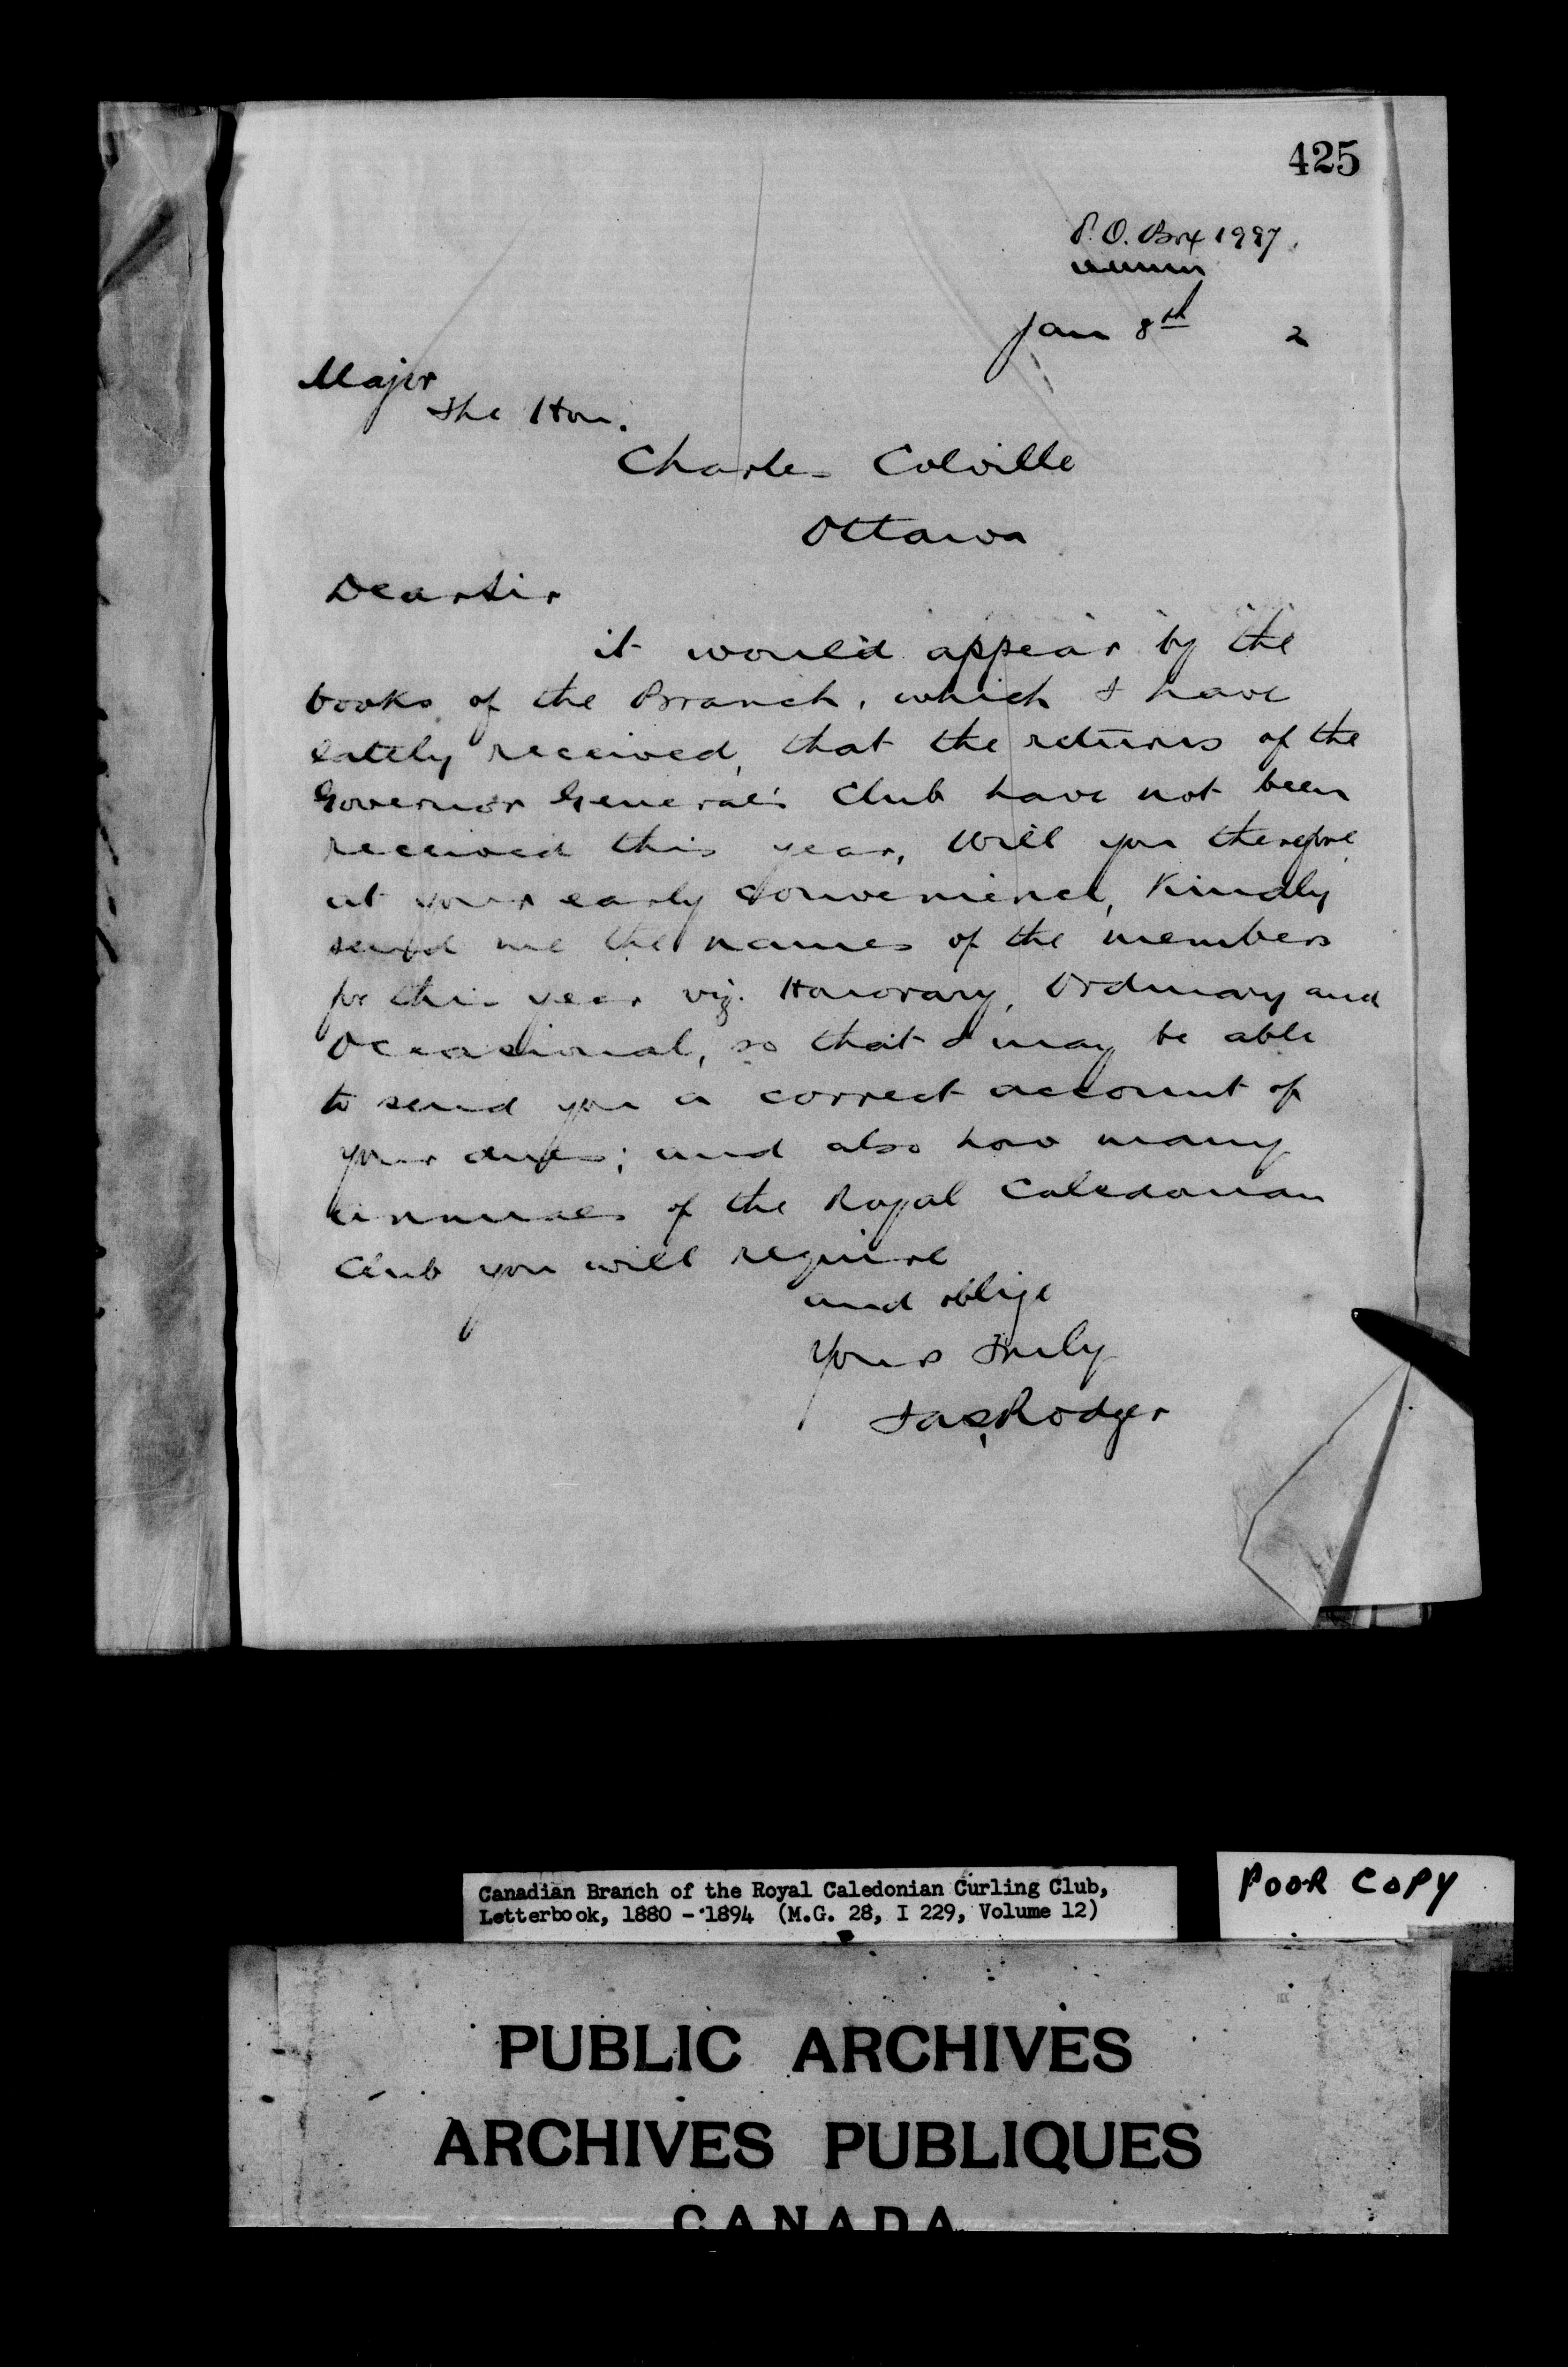 425
P.O. Box 1997.
Jan 8th 2
Major
The Hon.
Charles Colville
Ottawa
Dear Sir
it would appear by the
books of the Branch, which I have
lately received, that the returns of the
Governor General's Club have not been
received this year, Will you therefore
at your early convenience, Kindly
send me the names of the members
for this year viz. Honorary, Ordinary and
Occasional, so that I may be able
to send you a correct account of
your dues; and also how many
annuals of the Royal Caledonian
Club you will require
and oblige
Yours truly
Jas Rodger
Canadian Branch of the Royal Caledonian Curling Club,
Letterbook, 1880 - 1894 (M.G. 28, I 229, Volume 12)
POOR COPY
PUBLIC ARCHIVES
ARCHIVES PUBLIQUES
CANADA